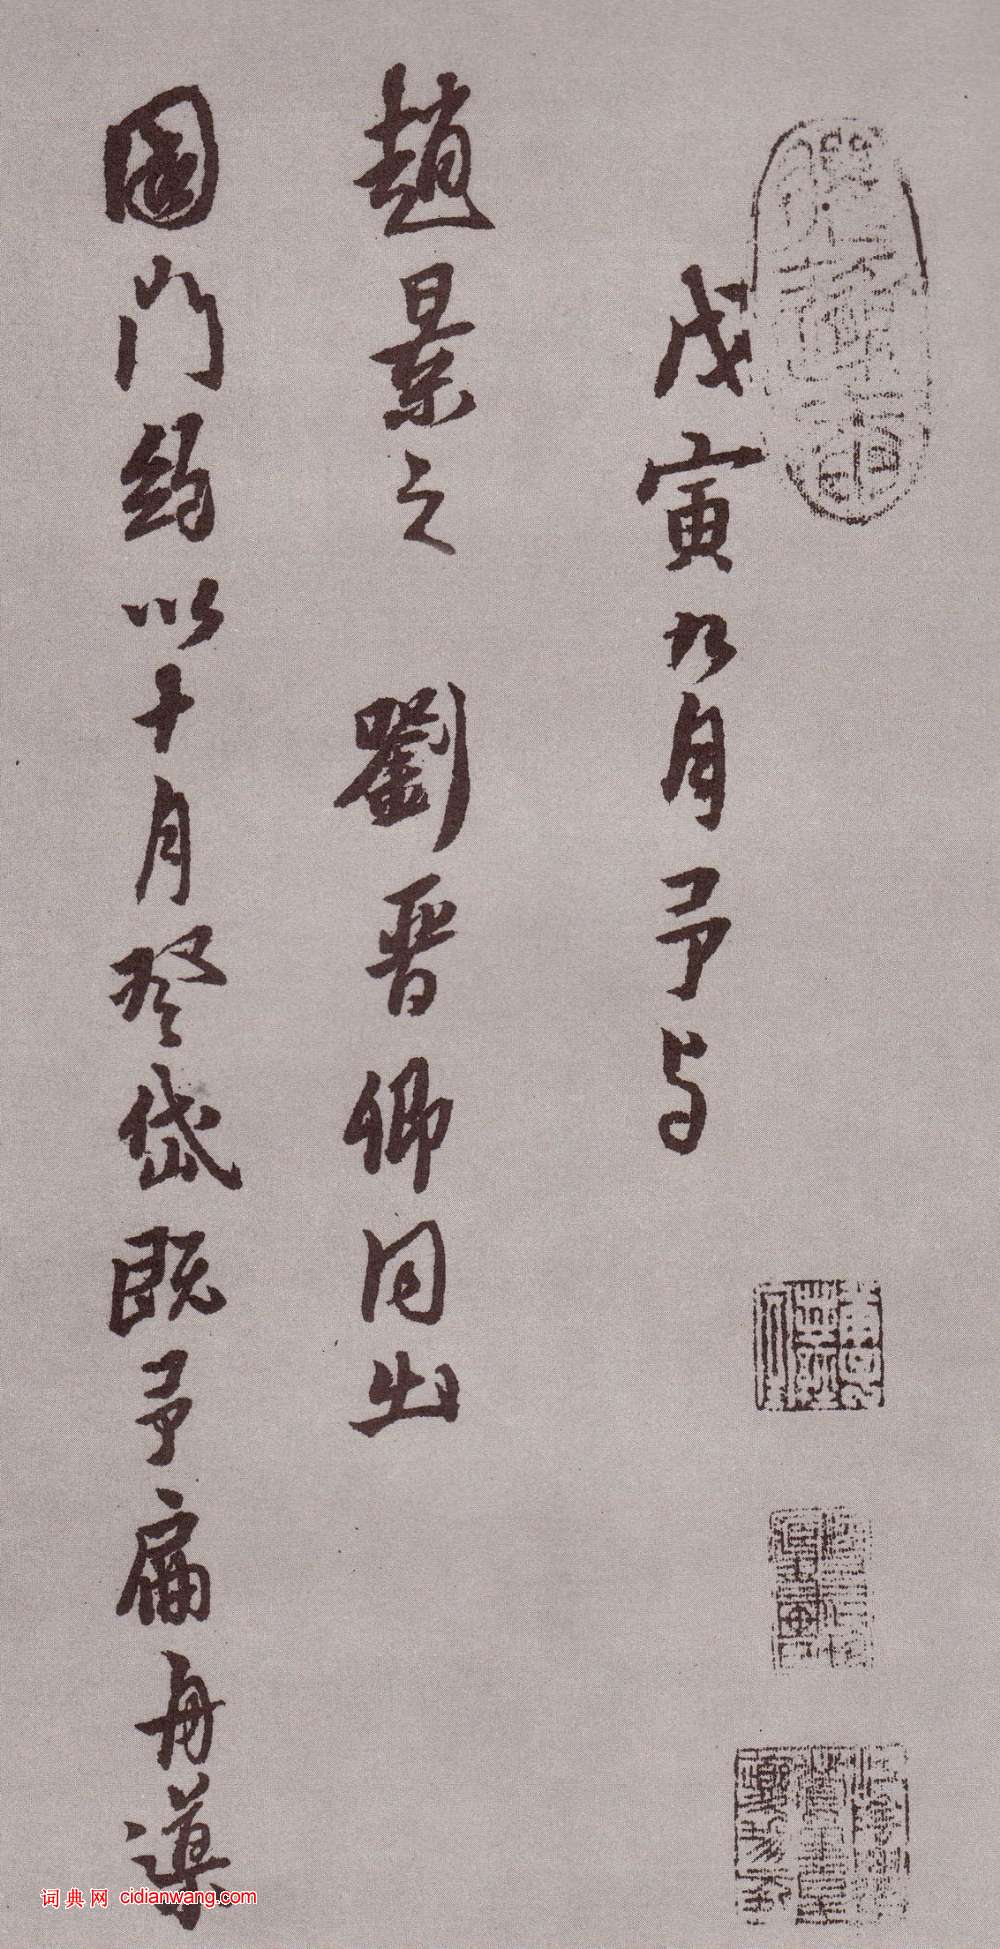 戊寅九月予与
趙景之 劉晉卿同出
國門約以十月登岱既予扁舟漢
词典网 cidianwang.com